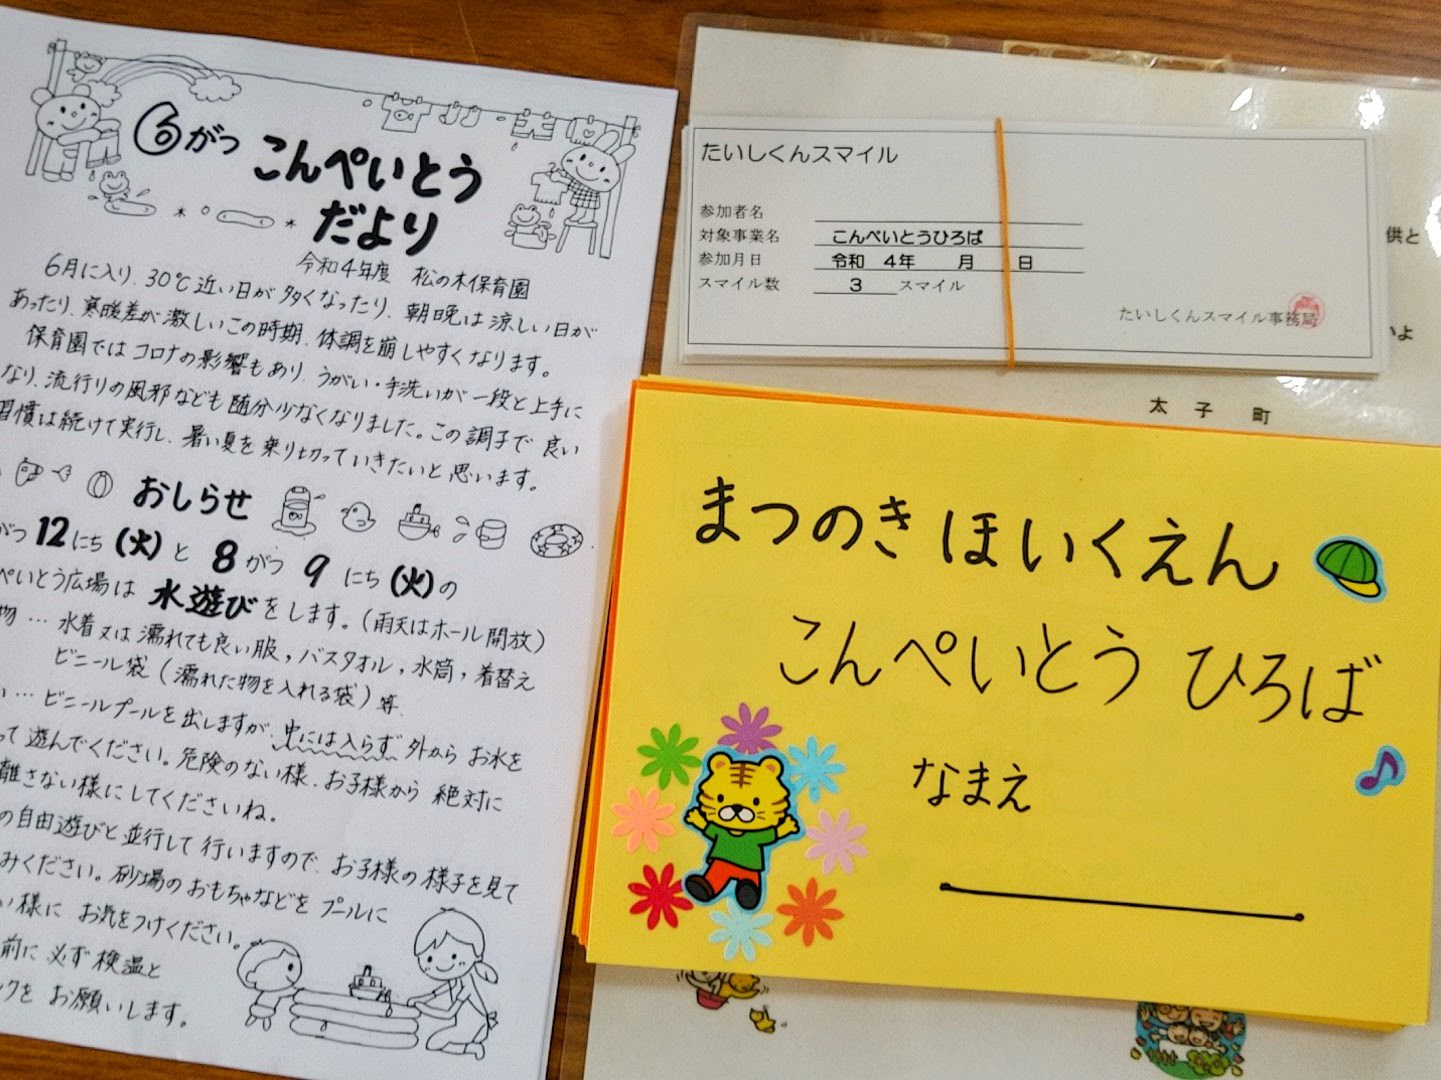 6がつ こんぺいとう
だより
令和4年度 松の木保育園
6月に入り、30℃近い日が多くなったり、朝晩は涼しい日が
あったり、寒暖差が激しいこの時期、体調を崩しやすくなります。
保育園ではコロナの影響もあり、うがい・手洗いが一段と上手に
なり、流行りの風邪なども随分少なくなりました。この調子で良い
習慣は続けて実行し、暑い夏を乗り切っていきたいと思います。
おしらせ
がつ12にち(火)と8がつ9にち(火)の
ぺいとう広場は水遊びをします。(雨天はホール開放)
物…水着又は濡れても良い服,バスタオル,水筒,着替え
ビニール袋(濡れた物を入れる袋)等.
い…ビニールプールを出しますが、中には入らず外からお水を
って遊んでください。危険のない様、お子様から絶対に
離さない様にしてくださいね。
の自由遊びと並行して行いますので、お子様の様子を見て
みください。砂場のおもちゃなどをプールに
い様にお気をつけください。
前に必ず検温と
ックをお願いします。
たいしくんスマイル
参加者名
対象事業名 こんぺいとうひろば
参加月日 令和 4年 月 日
スマイル数 3 スマイル
たいしくんスマイル事務局
供と
いよ
太子町
まつのきほいくえん
こんぺいとうひろば
なまえ